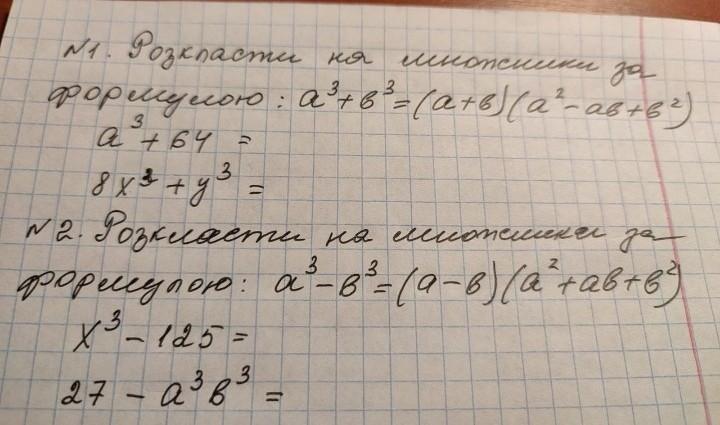 №1. Розкласти на множники за
формулою: a³+b³=(a+b)(a²-ab+b²)
a³+64 =
8x³+y³ =
№2. Розкласти на множники за
формулою: a³-b³=(a-b)(a²+ab+b²)
x³-125=
27-a³b³ =